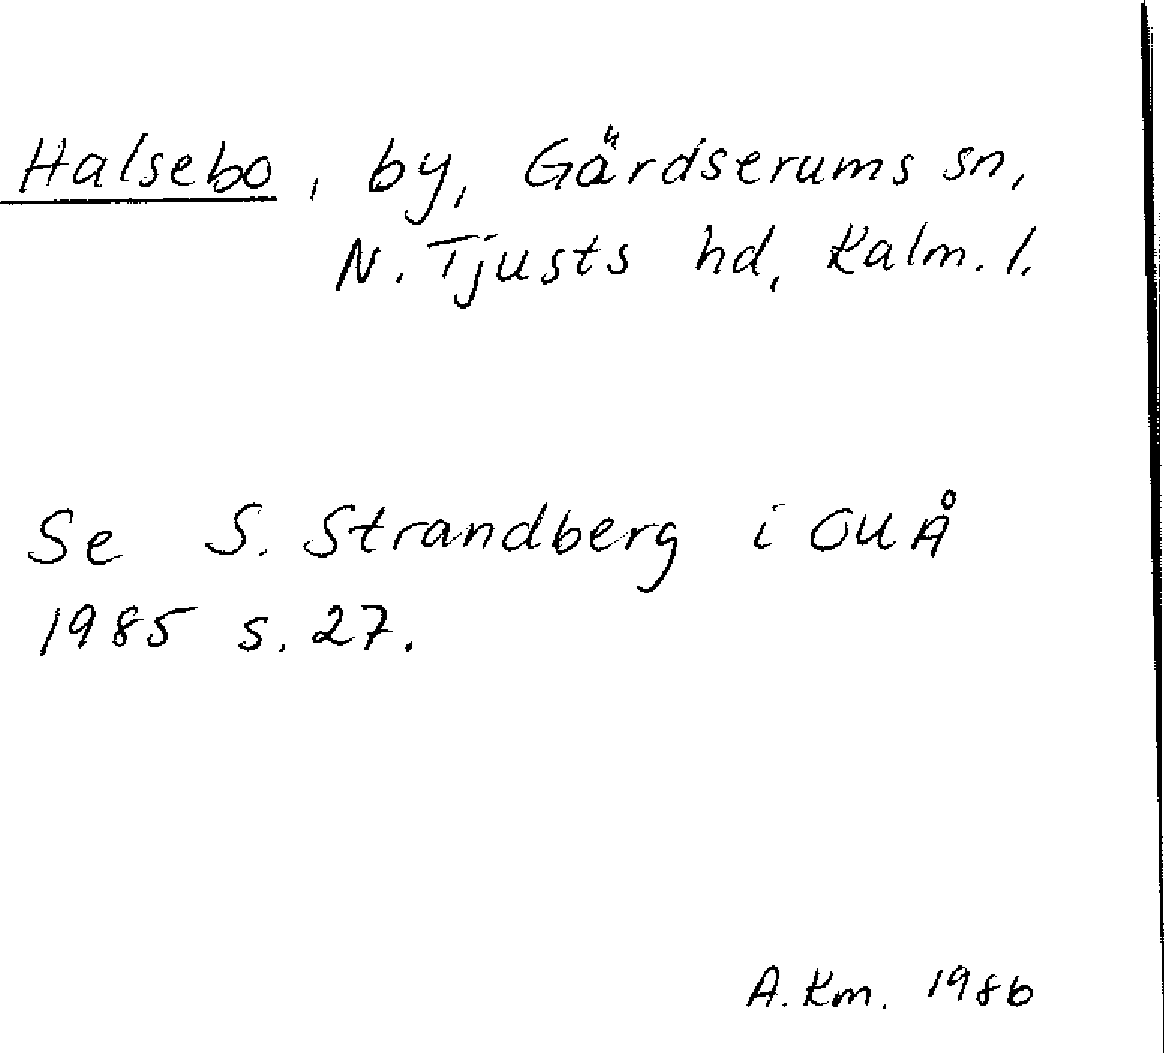 Halsebo, by, Gärdserums sn,
N. Tjusts hd, Kalm. l.
Se S. Strandberg i OUÅ
1985 s. 27.
A. Km. 1986